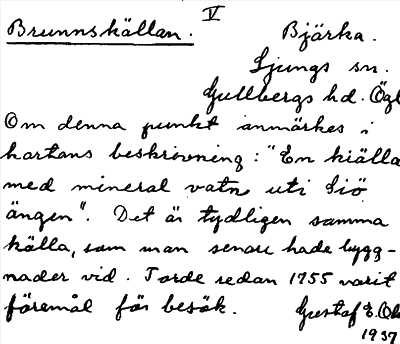 V
Brunnskällan.
Bjärka.
Ljungs sn.
Gullbergs hd. Ögl
Om denna punkt anmärkes i
kartans beskrivning: "En kiälla
med mineral vatn uti Siö
ängen". Det är tydligen samma
källa, som man senare hade bygg-
nader vid. Torde redan 1755 varit
föremål för besök.
Gustaf E.
1937